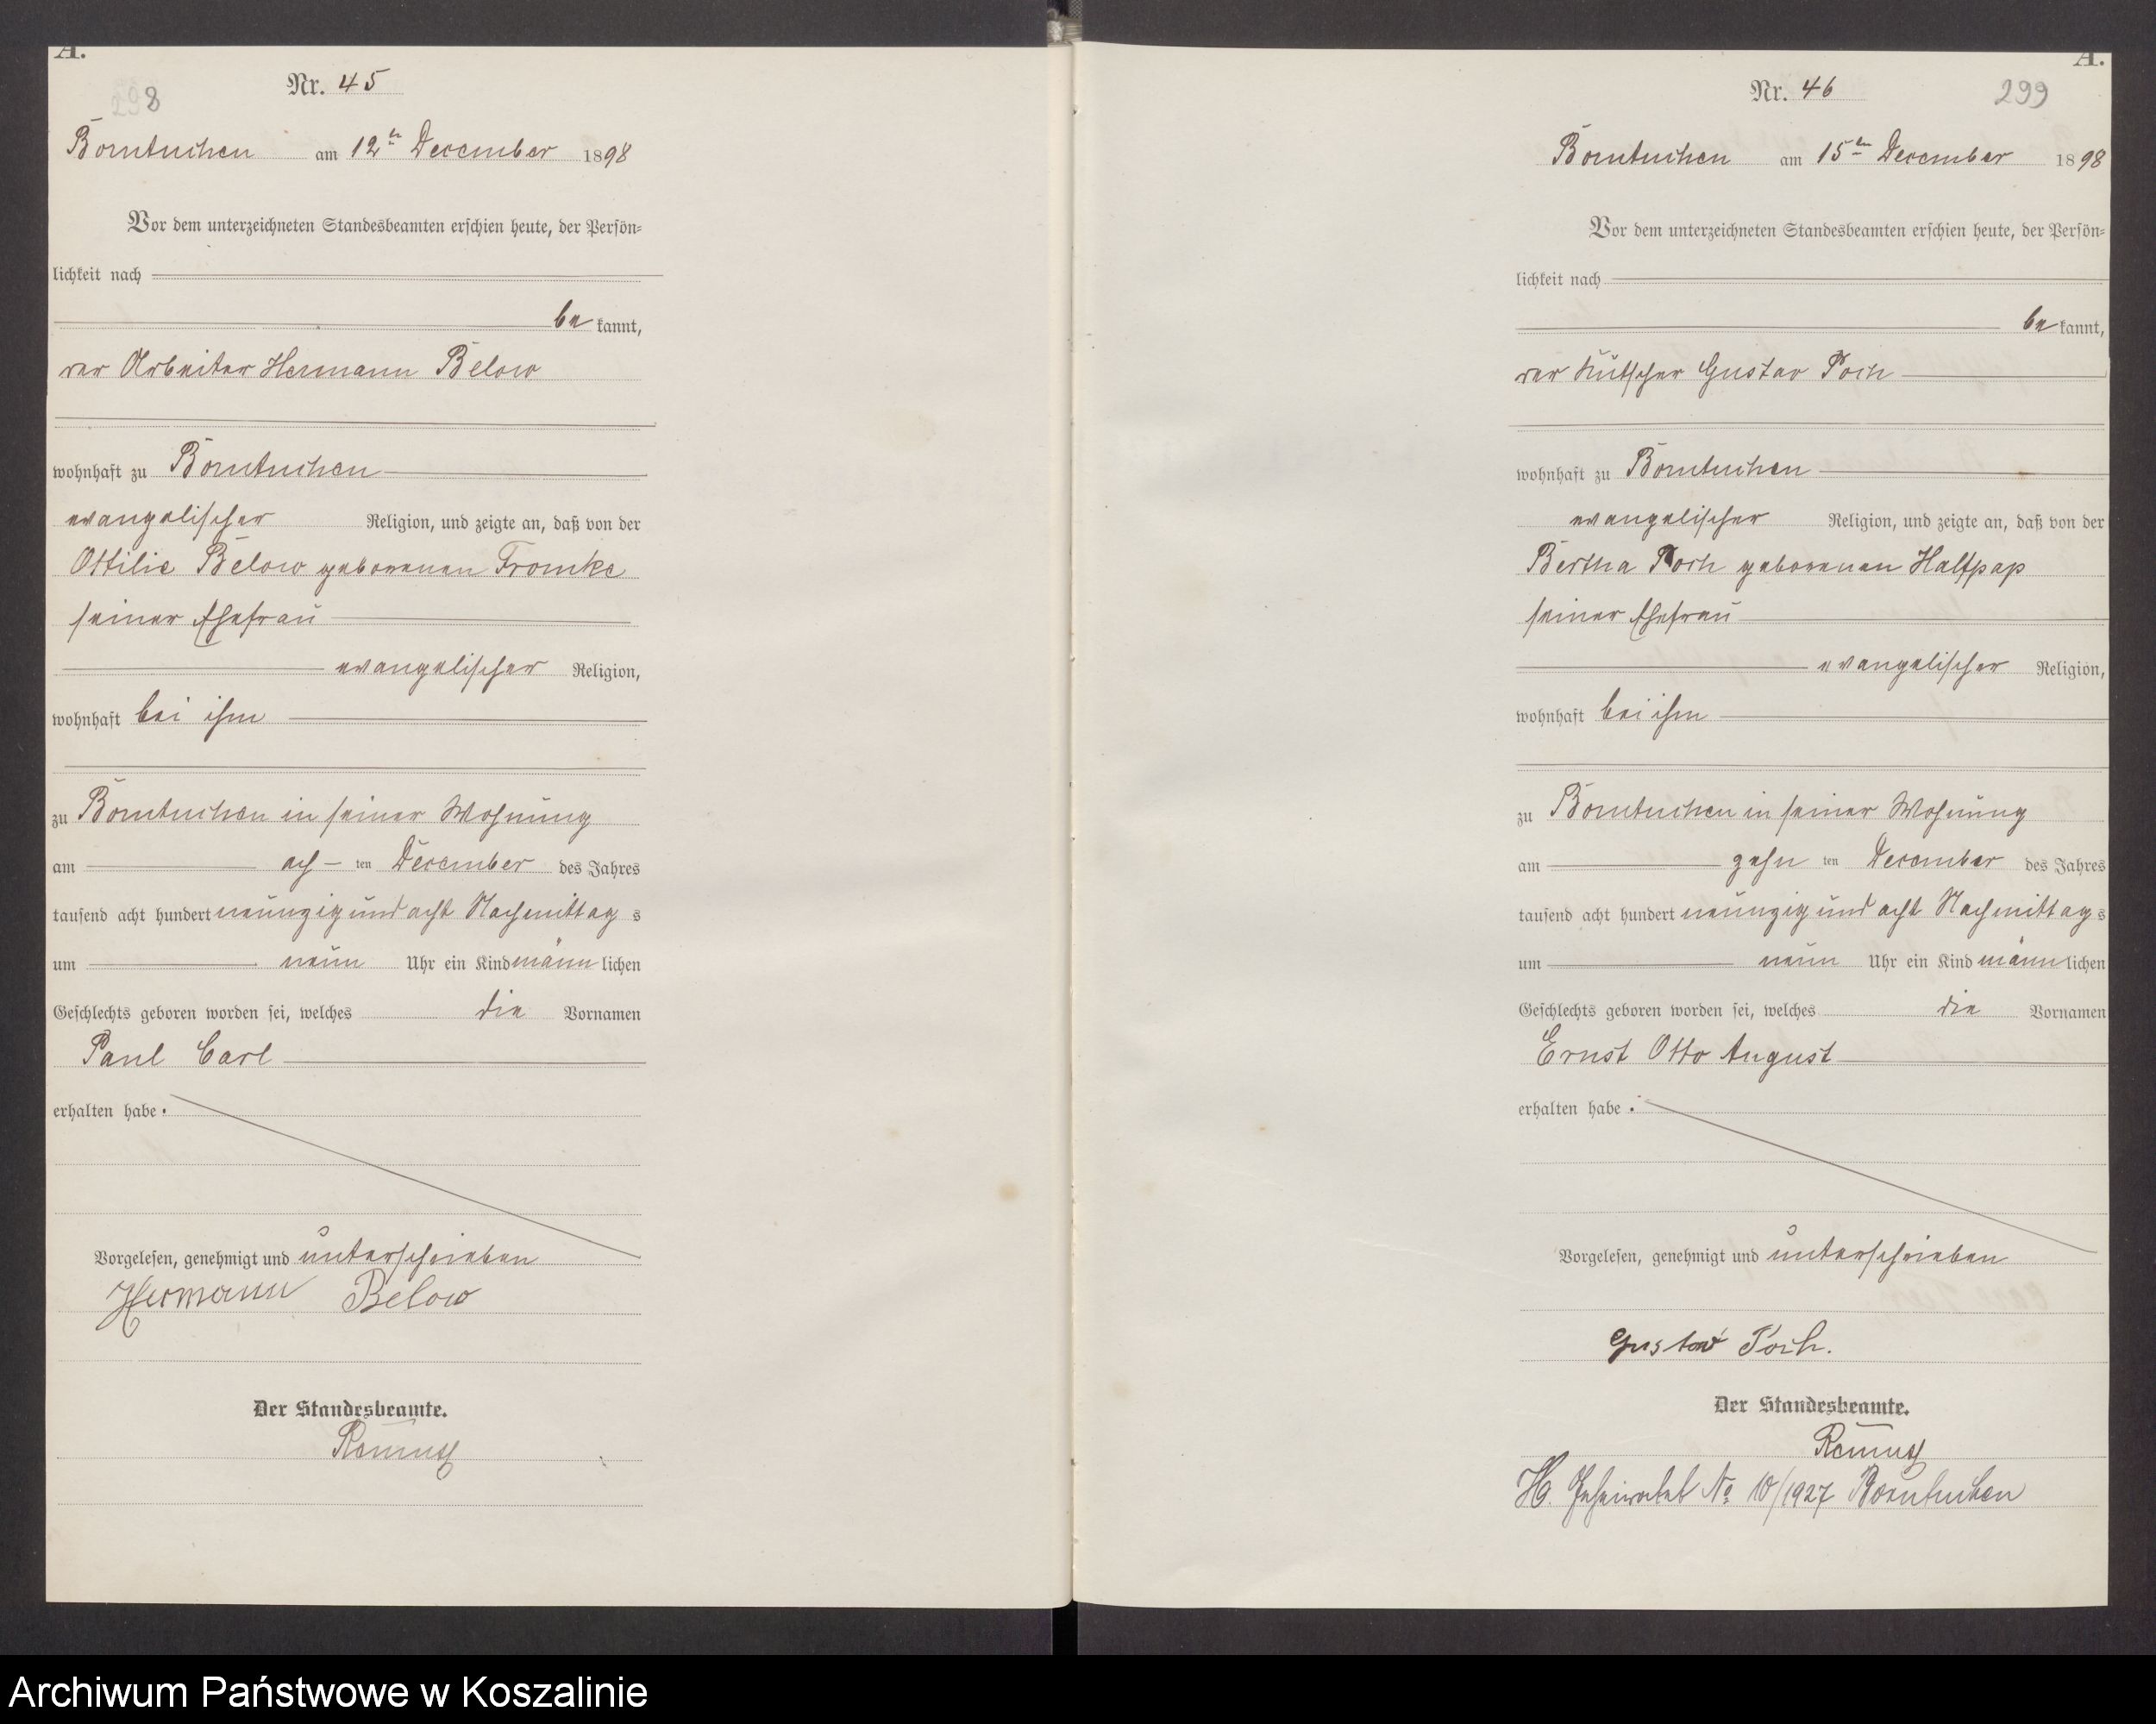 A.
298
Nr. 45
Borntuchen am 12ten December 1898
Vor dem unterzeichneten Standesbeamten erschien heute, der Persön-
lichkeit nach
be kannt,
der Arbeiter Hermann Below
wohnhaft zu Borntuchen
evangelischer Religion, und zeigte an, daß von der
Ottilie Below geborenen Fromke
seiner Ehefrau
evangelischer Religion,
wohnhaft bei ihm
zu Borntuchen in seiner Wohnung
am ach- ten December des Jahres
tausend acht hundert neunzig und acht Nachmittag s
um neun Uhr ein Kind männ lichen
Geschlechts geboren worden sei, welches die Vornamen
Paul Carl
erhalten habe.
Vorgelesen, genehmigt und unterschrieben
Hermann Below
Der Standesbeamte.
Remus
A.
Nr. 46
299
Borntuchen am 15ten December 1898
Vor dem unterzeichneten Standesbeamten erschien heute, der Persön-
lichkeit nach
be kannt,
der Kutscher Gustav Poch
wohnhaft zu Borntuchen
evangelischer Religion, und zeigte an, daß von der
Bertha Poch geborenen Halfpap
seiner Ehefrau
evangelischer Religion,
wohnhaft bei ihm
zu Borntuchen in seiner Wohnung
am zehn ten December des Jahres
tausend acht hundert neunzig und acht Nachmittag s
um neun Uhr ein Kind männ lichen
Geschlechts geboren worden sei, welches die Vornamen
Ernst Otto August
erhalten habe.
Vorgelesen, genehmigt und unterschrieben
Gustav Poch.
Der Standesbeamte.
Remus
H. Geheiratet No 10/1927 Borntuchen
Archiwum Państwowe w Koszalinie